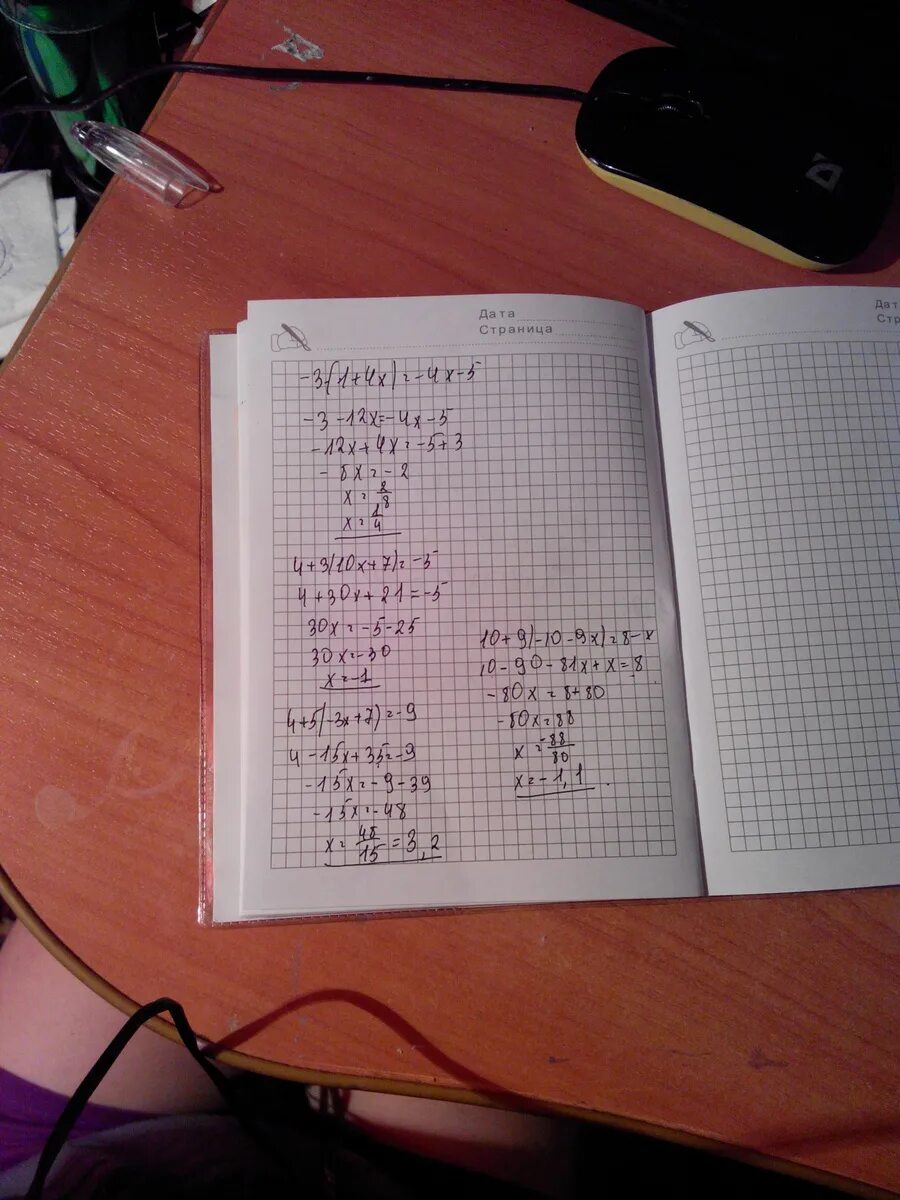 Дата
Страница
-3(1+4x)=-4x-5
-3-12x=-4x-5
-12x+4x=-5+3
-8x=-2
x=2/8
x=1/4
4+3(10x+7)=-5
4+30x+21=-5
30x=-5-25
30x=-30
x=-1
4+5(-3x+7)=-9
4-15x+35=-9
-15x=-9-39
-15x=-48
x=48/15=3,2
10+9(-10-9x)=8-x
10-90-81x+x=8
-80x=8+80
-80x=88
x=-88/80
x=-1,1
Дат
Стр